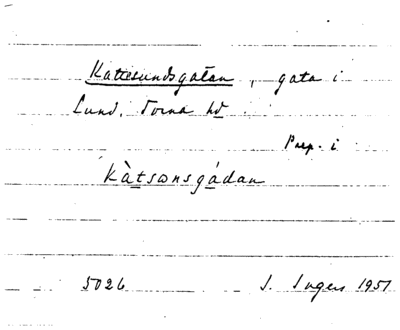 Kattesundsgatan, gata i
Lund, Torna hd.
Prep. i
Kàtsɷnsgádan
5026 I. Ingers 1951